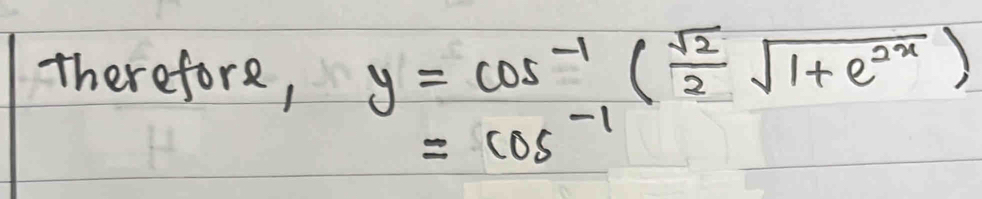 Therefore, y = cos⁻¹ (√2/2 √(1+e²ˣ))
= cos⁻¹